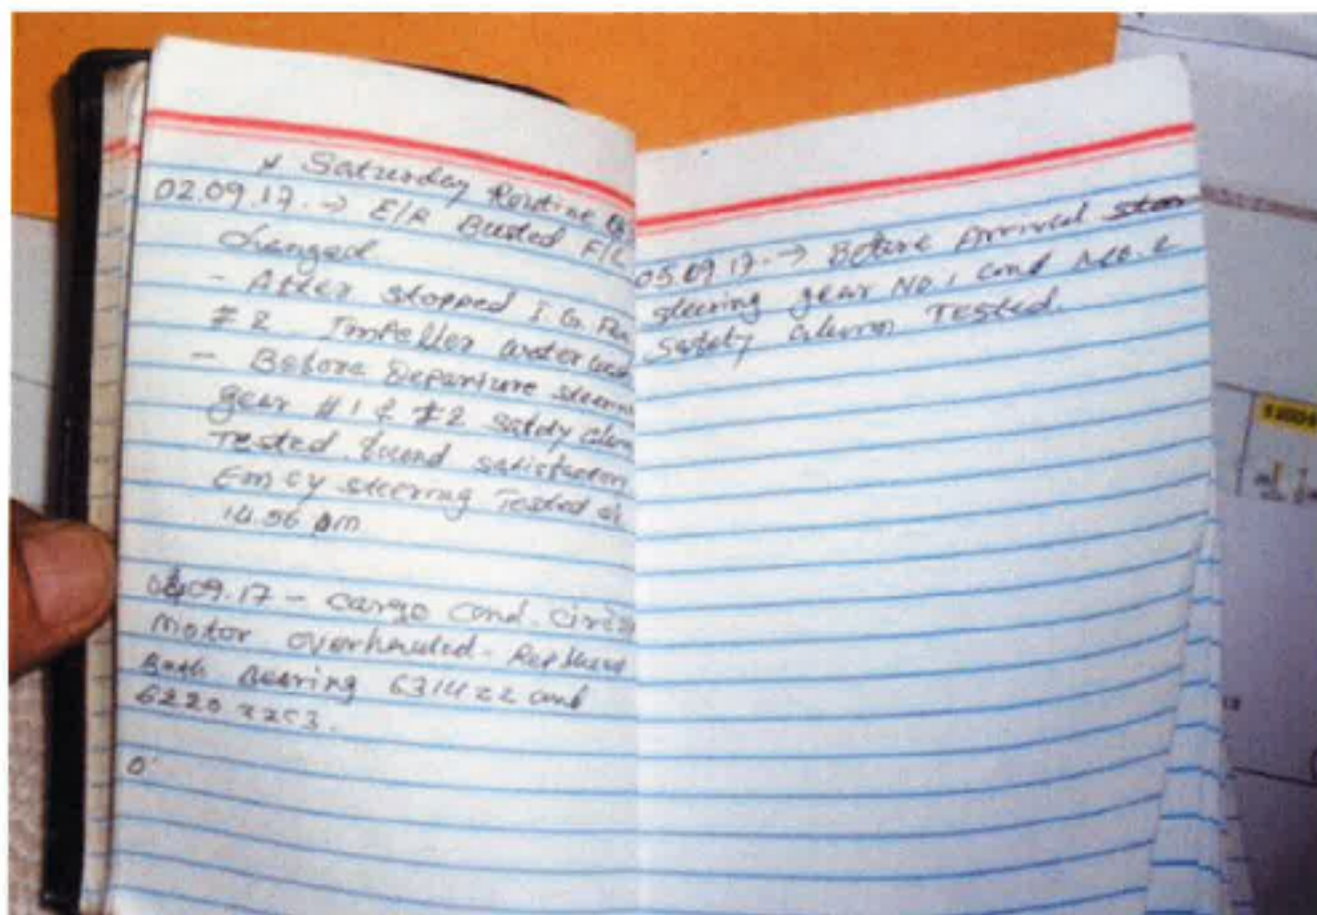 * Saturday Routine
02.09.17. → E/R Busted F/L
changed
- After stopped I.G. Fan
# 2 Impeller water wash
- Before Departure steering
gear #1 & #2 safety alarm
Tested found satisfactory
Emcy steering Tested at
14.56 pm
04.09.17 - cargo cond. circ
Motor overhauled - Replaced
Both Bearing 6314zz and
6220 zzC3.
0
05.09.17. → Before Arrival
steering gear No 1 and No. 2
safety alarm TESTED.